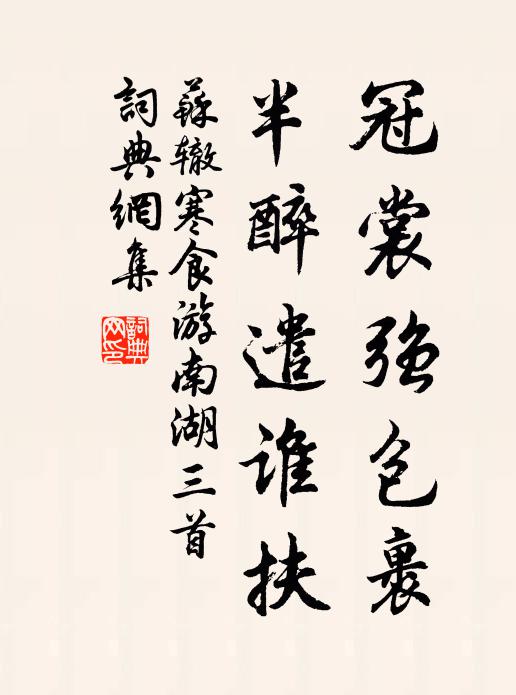 冠裳强包裹
半醉遣谁扶
蘇辙寒食游南湖三首
詞典網集
詞典网印